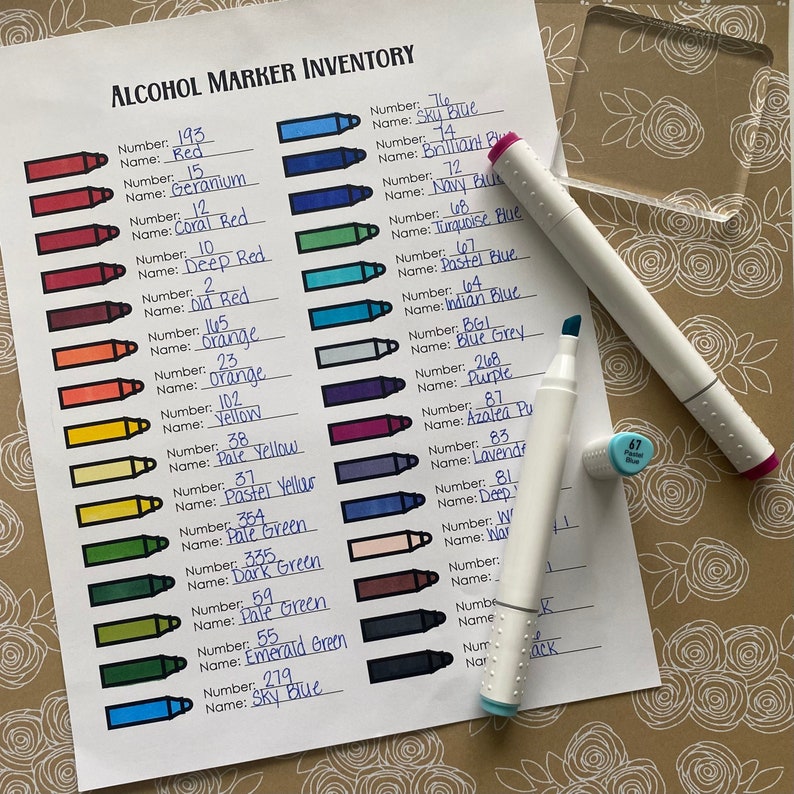 ALCOHOL MARKER INVENTORY
Number: 193
Name: Red
Number: 15
Name: Geranium
Number: 12
Name: Coral Red
Number: 10
Name: Deep Red
Number: 2
Name: Old Red
Number: 165
Name: Orange
Number: 23
Name: Orange
Number: 102
Name: Yellow
Number: 38
Name: Pale Yellow
Number: 37
Name: Pastel Yellow
Number: 354
Name: Pale Green
Number: 335
Name: Dark Green
Number: 59
Name: Pale Green
Number: 55
Name: Emerald Green
Number: 279
Name: Sky Blue
Number: 76
Name: Sky Blue
Number: 74
Name: Brilliant
Number: 72
Name: Navy Blue
Number: 68
Name: Turquoise Blue
Number: 67
Name: Pastel Blue
Number: 64
Name: Indian Blue
Number: BG1
Name: Blue Grey
Number: 268
Name: Purple
Number: 87
Name: Azalea
Number: 83
Name: Lavende
Number: 81
Name: Deep
Number:
Name:
Number:
Name:
Number:
Name:
Number:
Name: ack
67
Pastel
Blue